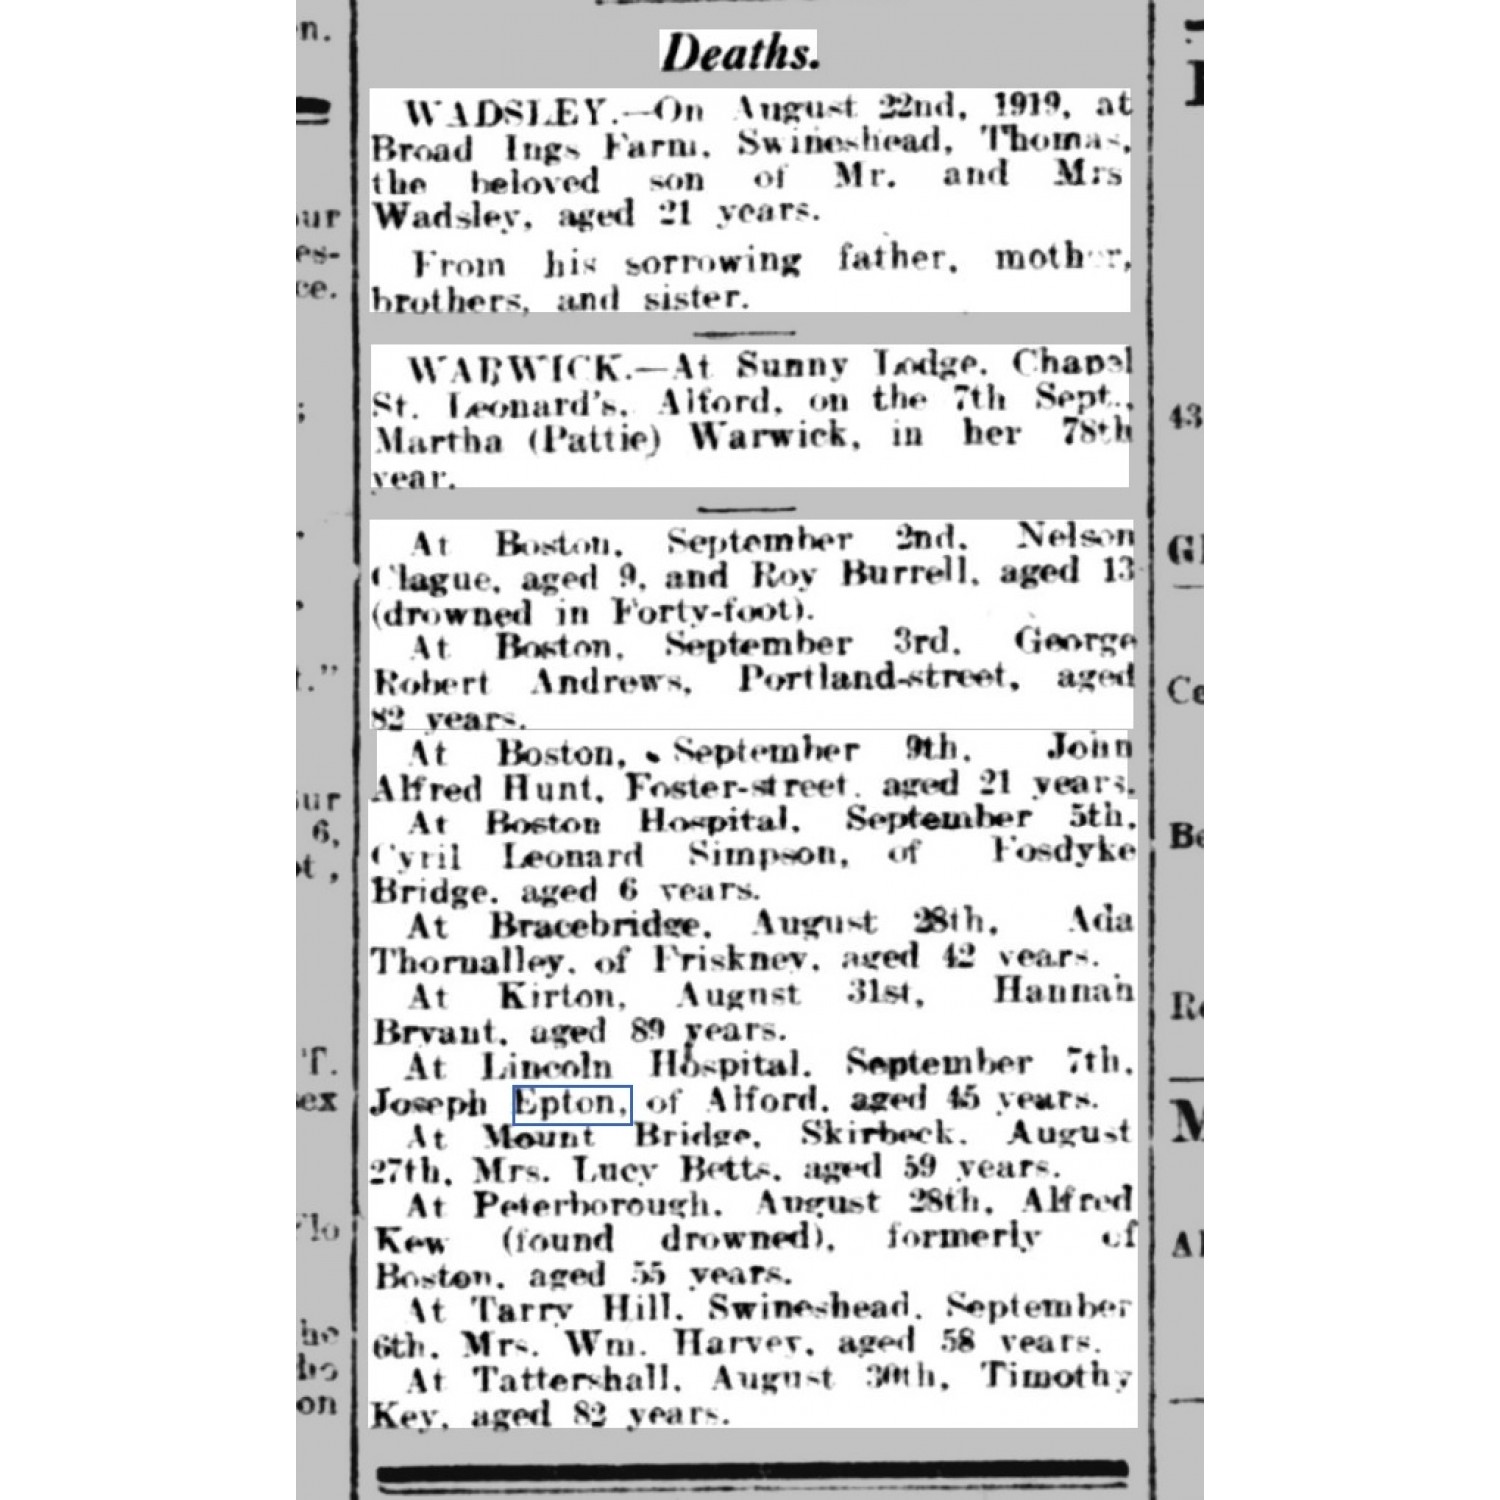 Deaths.
WADSLEY.—On August 22nd, 1919, at
Broad Ings Farm, Swineshead, Thomas,
the beloved son of Mr. and Mrs
Wadsley, aged 21 years.
From his sorrowing father, mother,
brothers, and sister.
WARWICK.—At Sunny Lodge, Chapel
St. Leonard's, Alford, on the 7th Sept.,
Martha (Pattie) Warwick, in her 78th
year.
At Boston, September 2nd, Nelson
Clague, aged 9, and Roy Burrell, aged 13
(drowned in Forty-foot).
At Boston, September 3rd, George
Robert Andrews, Portland-street, aged
82 years.
At Boston, September 9th, John
Alfred Hunt, Foster-street, aged 21 years.
At Boston Hospital, September 5th,
Cyril Leonard Simpson, of Fosdyke
Bridge, aged 6 years.
At Bracebridge, August 28th, Ada
Thornalley, of Friskney, aged 42 years.
At Kirton, August 31st, Hannah
Bryant, aged 89 years.
At Lincoln Hospital, September 7th,
Joseph Epton, of Alford, aged 45 years.
At Mount Bridge, Skirbeck, August
27th, Mrs. Lucy Betts, aged 59 years.
At Peterborough, August 28th, Alfred
Kew (found drowned), formerly of
Boston, aged 55 years.
At Tarry Hill, Swineshead, September
6th, Mrs. Wm. Harvey, aged 58 years.
At Tattershall, August 30th, Timothy
Key, aged 82 years.